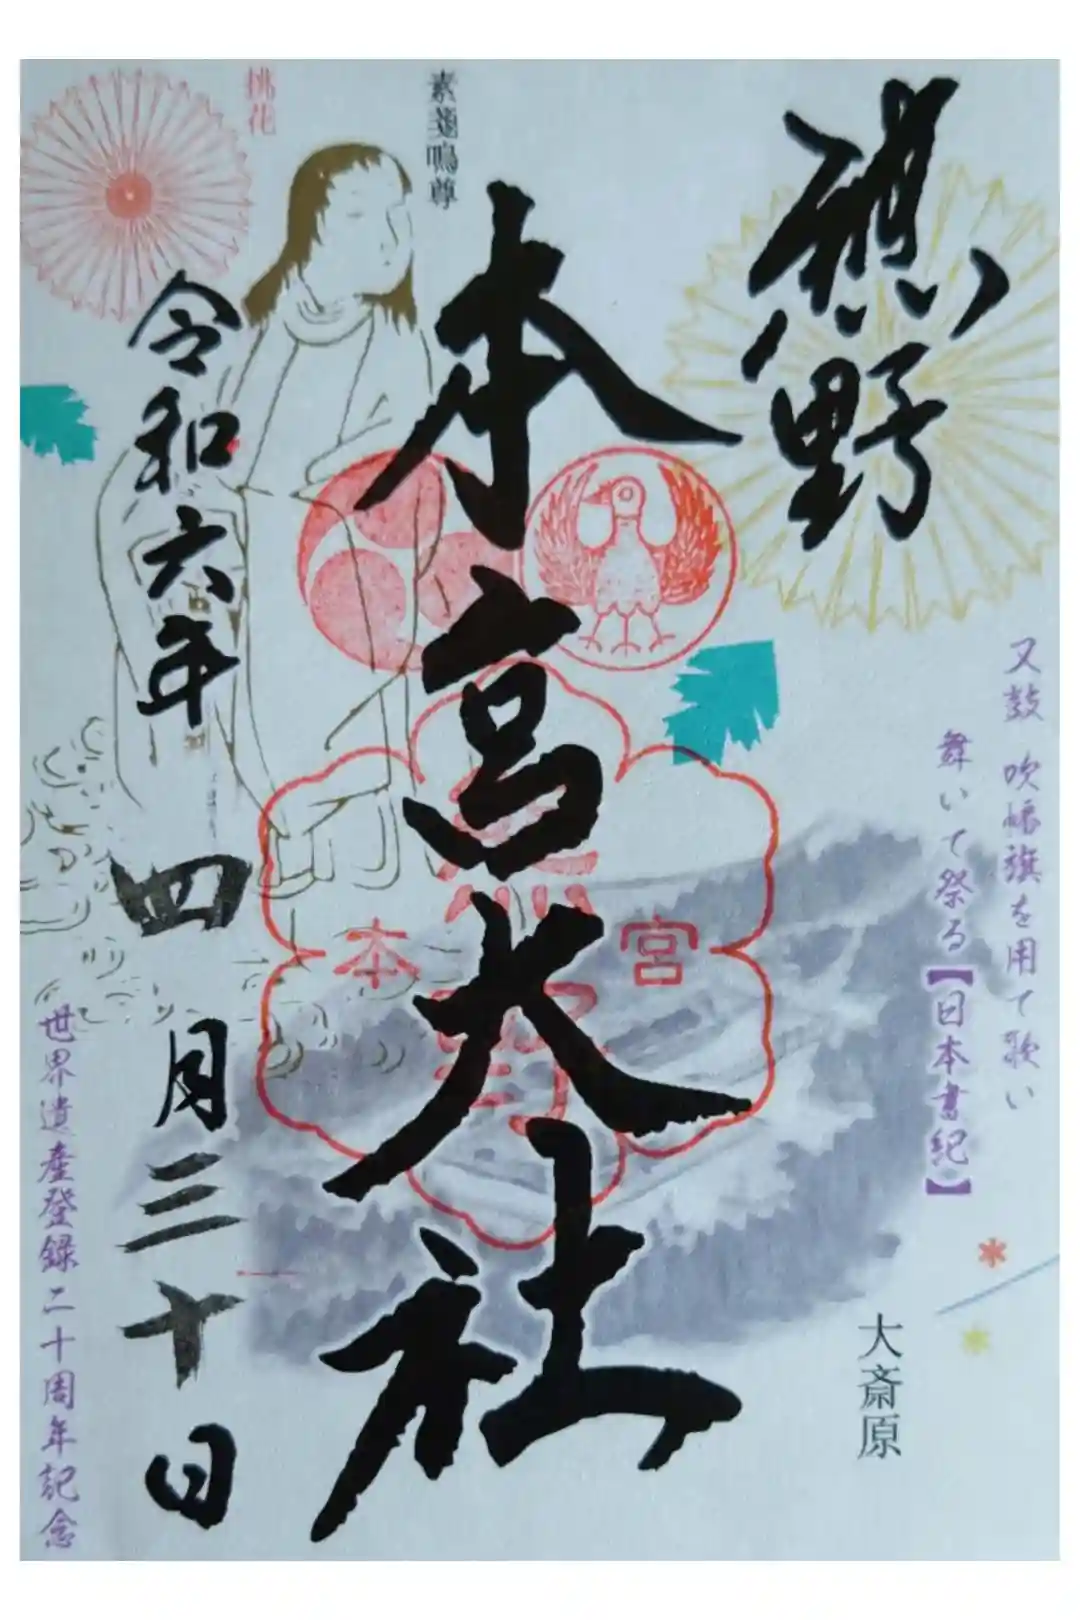 熊野
又鼓 吹幡旗を用て歌い
舞いて祭る【日本書紀】
大斎原
本宮大社
素戔嗚尊
本 宮
熊野
桃花
令和六年
四月三十日
世界遺産登録二十周年記念